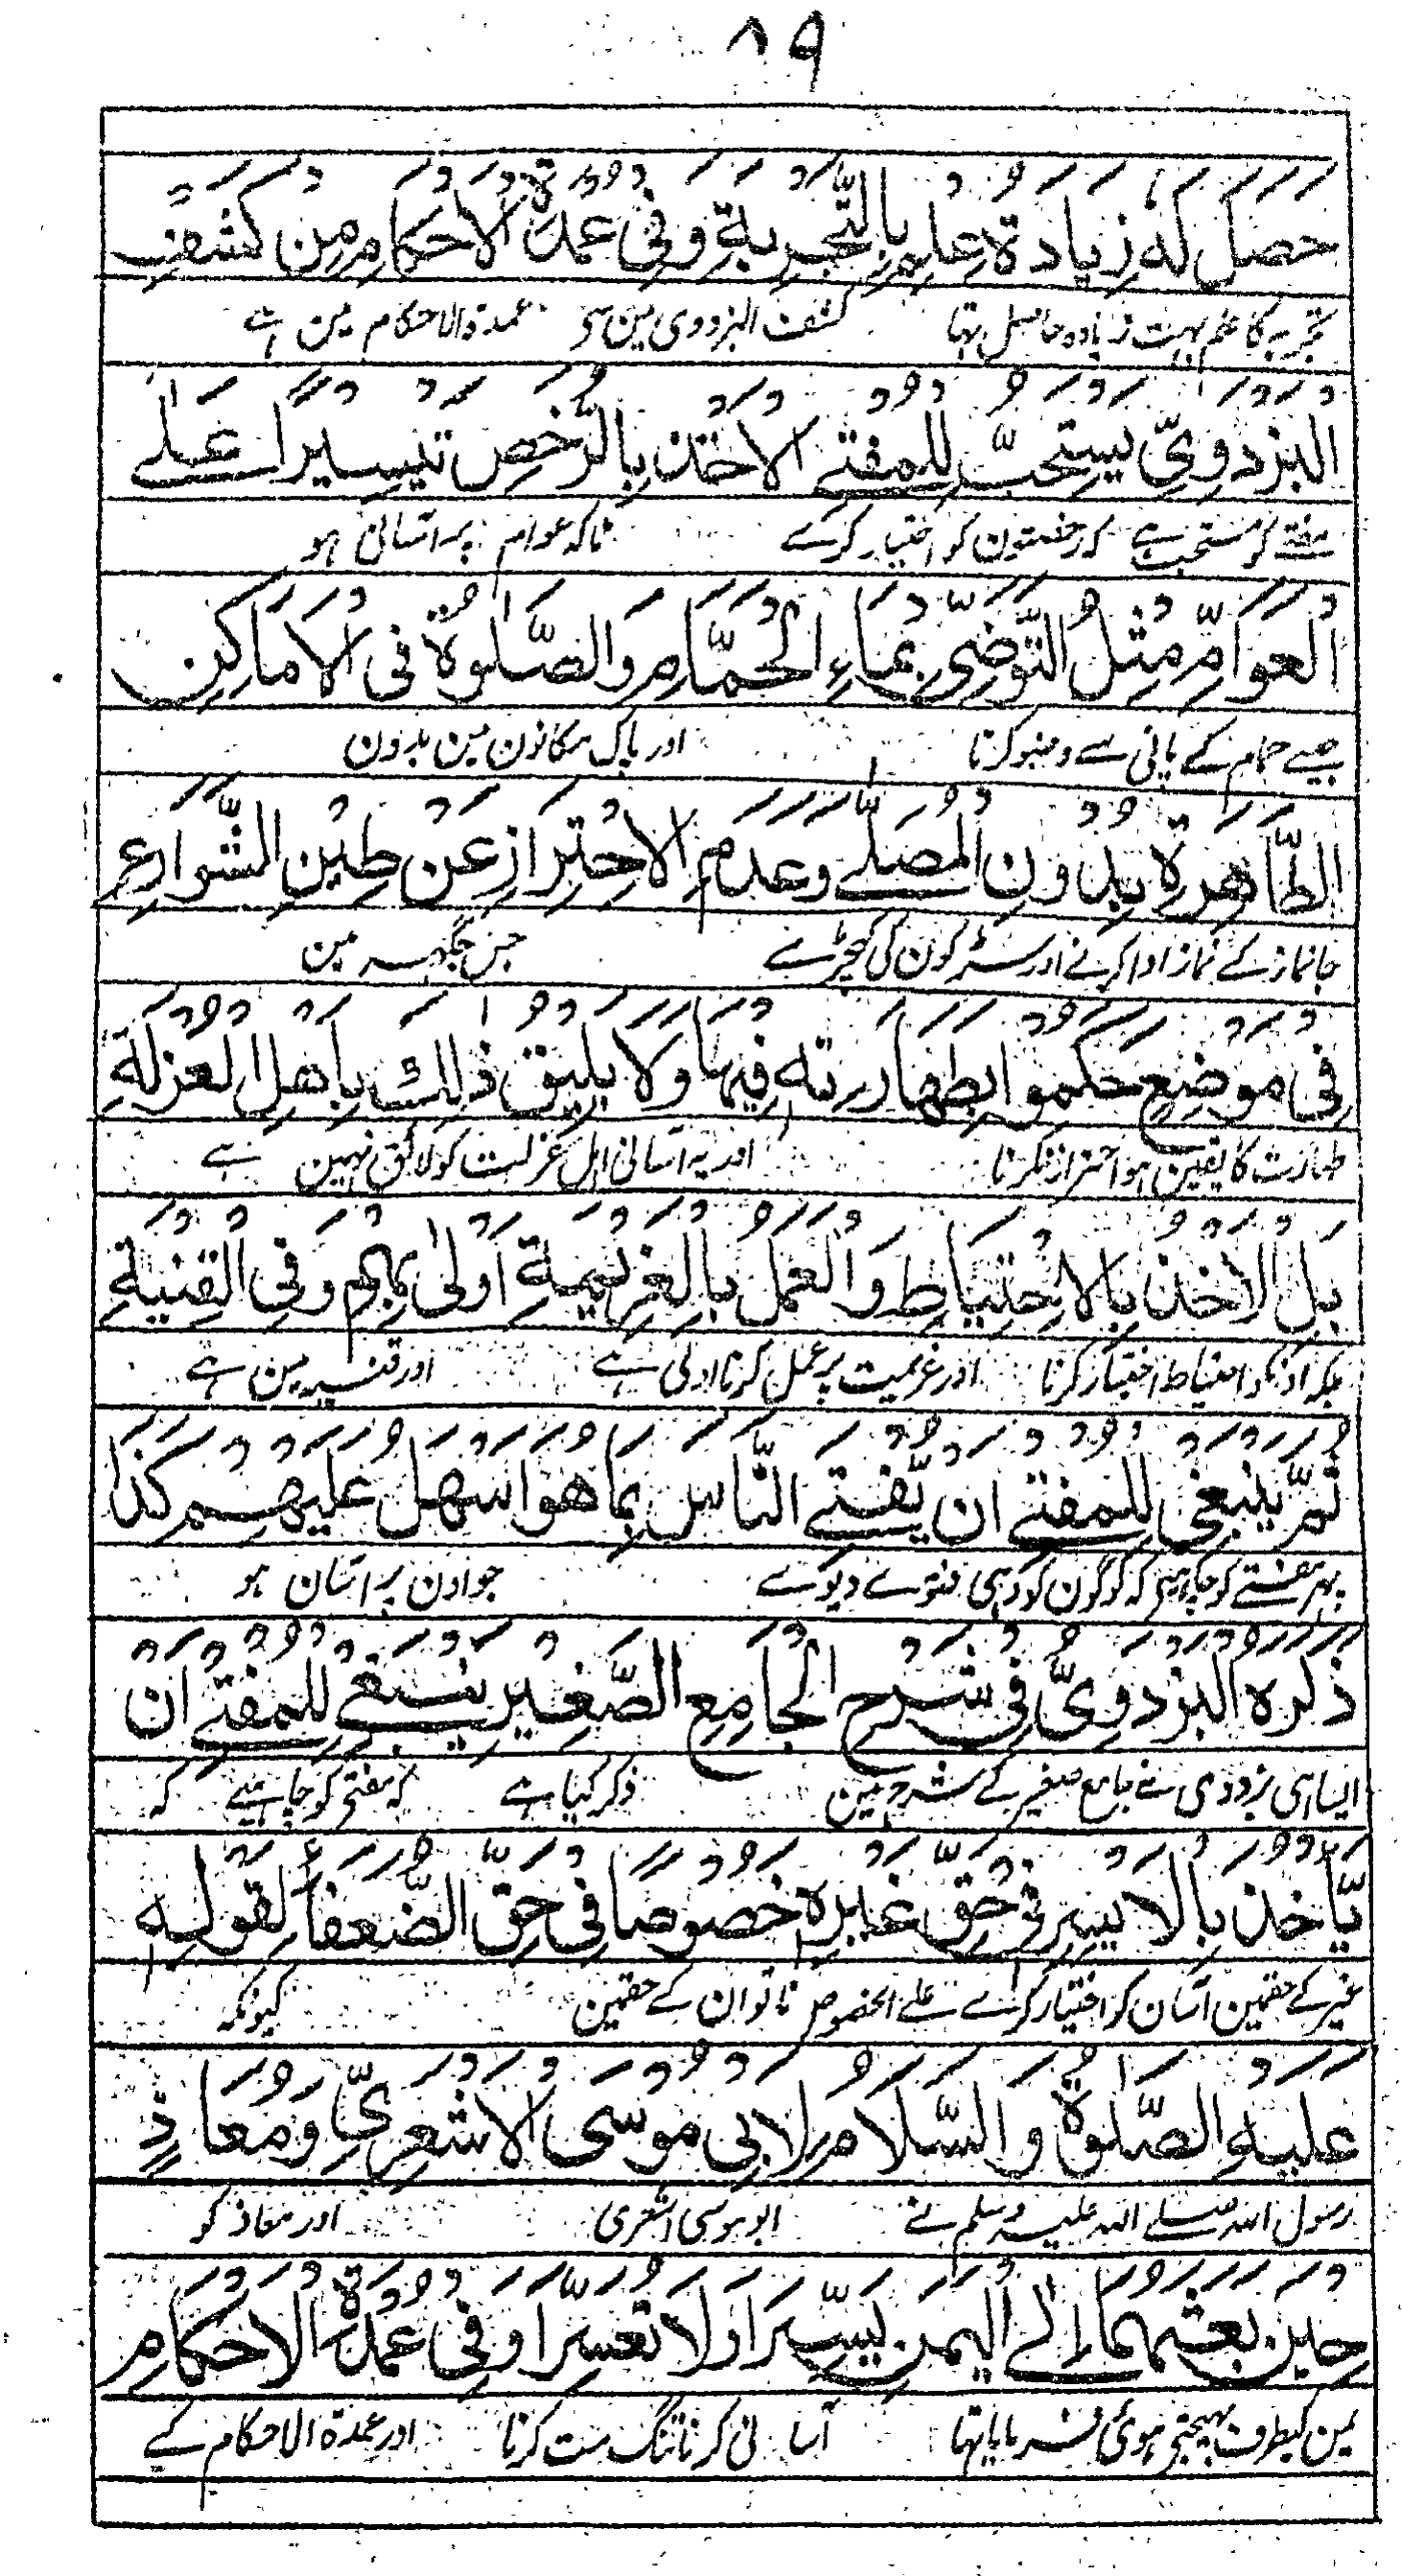 ۸۹
حَصَلَ لَهُ زِيَادَةُ عِلْمٍ بِالتَّجْرِبَةِ وَفِيْ عُمْدَةِ الْاَحْكَامِ مِنْ كَشْفِ
تجربہ کا علم بہت زیادہ حاصل تہا کشف البزدوی مین سی عمدۃ الاحکام مین ہے
الْبَزْدَوِيِّ يُسْتَحَبُّ لِلْمُفْتِے الْاَخْذُ بِالرُّخَصِ تَيْسِيْرًا عَلَے
مفتے کو مستحب ہے کہ رخصتون کو اختیار کرے تاکہ عوام پر آسانی ہو
الْعَوَامِّ مِثْلُ التَّوَضِّيْ بِمَاءِ الْحَمَّامِ وَالصَّلٰوةُ فِى الْاَمَاكِنِ
جیسے حمام کے پانی سے وضو کرنا اور پاک مکانون مین بدون
الطَّاهِرَةِ بِدُوْنِ الْمُصَلّٰے وَعَدَمِ الْاِحْتِرَازِ عَنْ طِيْنِ الشَّوَارِعِ
جانماز کے نماز ادا کرنے اور سڑکون کی کیچڑ سے جس جگہہ مین
فِىْ مَوْضِعٍ حَكَمُوْا بِطَهَارَتِهٖ فِيْهَا وَلَا يَلِيْقُ ذٰلِكَ بِاَهْلِ الْعُزْلَةِ
طہارت کا یقین ہو احتراز نکرنا اور یہ آسانی اہل عزلت کو لائق نہین ہے
بَلِ الْاَخْذُ بِالْاِحْتِيَاطِ وَالْعَمَلُ بِالْعَزِيْمَةِ اَوْلٰى بِهِمْ وَفِى الْقُنْيَةِ
بلکہ اونکو احتیاط اختیار کرنا اور عزیمت پر عمل کرنا اولی ہے اور قنیہ مین ہے
ثُمَّ يَنْبَغِىْ لِلْمُفْتِے اَنْ يُّفْتِے النَّاسَ بِمَا هُوَ اَسْهَلُ عَلَيْهِمْ كَذَا
پہر مفتے کو چاہیے کہ لوگون کو وہی فتوے دیوے جو اون پر آسان ہو
ذَكَرَهُ الْبَزْدَوِىُّ فِىْ شَرْحِ الْجَامِعِ الصَّغِيْرِ يَنْبَغِے لِلْمُفْتِے اَنْ
ایسا ہی بزدوی نے جامع صغیر کے شرح مین ذکر کیا ہے کہ مفتی کو چاہیے کہ
يَّاْخُذَ بِالْاَيْسَرِ فِىْ حَقِّ غَيْرِهٖ خُصُوْصًا فِىْ حَقِّ الضُّعَفَاءِ لِقَوْلِهٖ
غیر کے حقمین آسان کو اختیار کرے علے الخصوص ناتوان کے حقمین کیونکہ
عَلَيْهِ الصَّلٰوةُ وَالسَّلَامُ لِاَبِىْ مُوْسَى الْاَشْعَرِىِّ وَمُعَاذٍ
رسول اللہ صلے اللہ علیہ وسلم نے ابو موسی اشعری اور معاذ کو
حِيْنَ بَعَثَهُمَا اِلَے الْيَمَنِ يَسِّرَا وَلَا تُعَسِّرَا وَفِىْ عُمْدَةِ الْاَحْكَامِ
یمن کیطرف بہیجتی ہوئی فرمایا تہا آسانی کرنا تنگ مت کرنا اور عمدۃ الاحکام کے